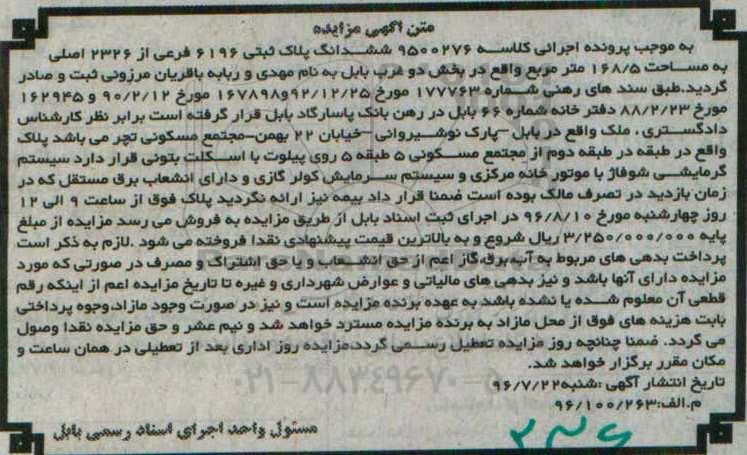 متن آگهی مزایده
به موجب پرونده اجرائی کلاسه ۹۵۰۰۲۷۶ ششدانگ پلاک ثبتی ۶۱۹۶ فرعی از ۲۳۲۶ اصلی
به مساحت ۱۶۸/۵ متر مربع واقع در بخش دو غرب بابل به نام مهدی و ربابه باقریان مرزونی ثبت و صادر
گردید.طبق سند های رهنی شماره ۱۷۷۷۶۳ مورخ ۹۲/۱۲/۲۵و۱۶۷۸۹۸ مورخ ۹۰/۲/۱۲ و ۱۶۲۹۴۵
مورخ ۸۸/۲/۲۳ دفتر خانه شماره ۶۶ بابل در رهن بانک پاسارگاد بابل قرار گرفته است برابر نظر کارشناس
دادگستری ، ملک واقع در بابل –پارک نوشیروانی –خیابان ۲۲ بهمن–مجتمع مسکونی تچر می باشد پلاک
واقع در طبقه در طبقه دوم از مجتمع مسکونی ۵ طبقه ۵ روی پیلوت با اسکلت بتونی قرار دارد سیستم
گرمایشی شوفاژ با موتور خانه مرکزی و سیستم سرمایش کولر گازی و دارای انشعاب برق مستقل که در
زمان بازدید در تصرف مالک بوده است ضمنا قرار داد بیمه نیز ارائه نگردید پلاک فوق از ساعت ۹ الی ۱۲
روز چهارشنبه مورخ ۹۶/۸/۱۰ در اجرای ثبت اسناد بابل از طریق مزایده به فروش می رسد مزایده از مبلغ
پایه ۳/۲۵۰/۰۰۰/۰۰۰ ریال شروع و به بالاترین قیمت پیشنهادی نقدا فروخته می شود .لازم به ذکر است
پرداخت بدهی های مربوط به آب،برق،گاز اعم از حق انشعاب و یا حق اشتراک و مصرف در صورتی که مورد
مزایده دارای آنها باشد و نیز بدهی های مالیاتی و عوارض شهرداری و غیره تا تاریخ مزایده اعم از اینکه رقم
قطعی آن معلوم شده یا نشده باشد به عهده برنده مزایده است و نیز در صورت وجود مازاد،وجوه پرداختی
بابت هزینه های فوق از محل مازاد به برنده مزایده مسترد خواهد شد و نیم عشر و حق مزایده نقدا وصول
می گردد. ضمنا چنانچه روز مزایده تعطیل رسمی گردد،مزایده روز اداری بعد از تعطیلی در همان ساعت و
مکان مقرر برگزار خواهد شد.
تاریخ انتشار آگهی :شنبه۹۶/۷/۲۲
۰۲۱-۸۸۳۴۹۶۷۰-۵
م.الف:۹۶/۱۰۰/۲۶۳
مسئول واحد اجرای اسناد رسمی بابل